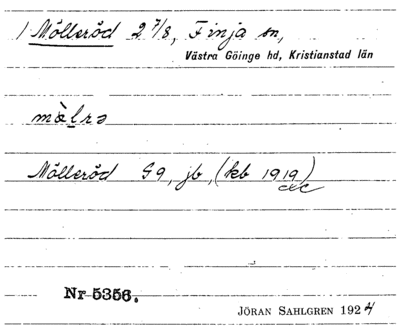 1 Mölleröd 2 7/8, Finja sn,
Västra Göinge hd, Kristianstad län
mꞷ̀lrə
Mölleröd S9, jb, (kb 1919)
Nr 5356.
JÖRAN SAHLGREN 1924